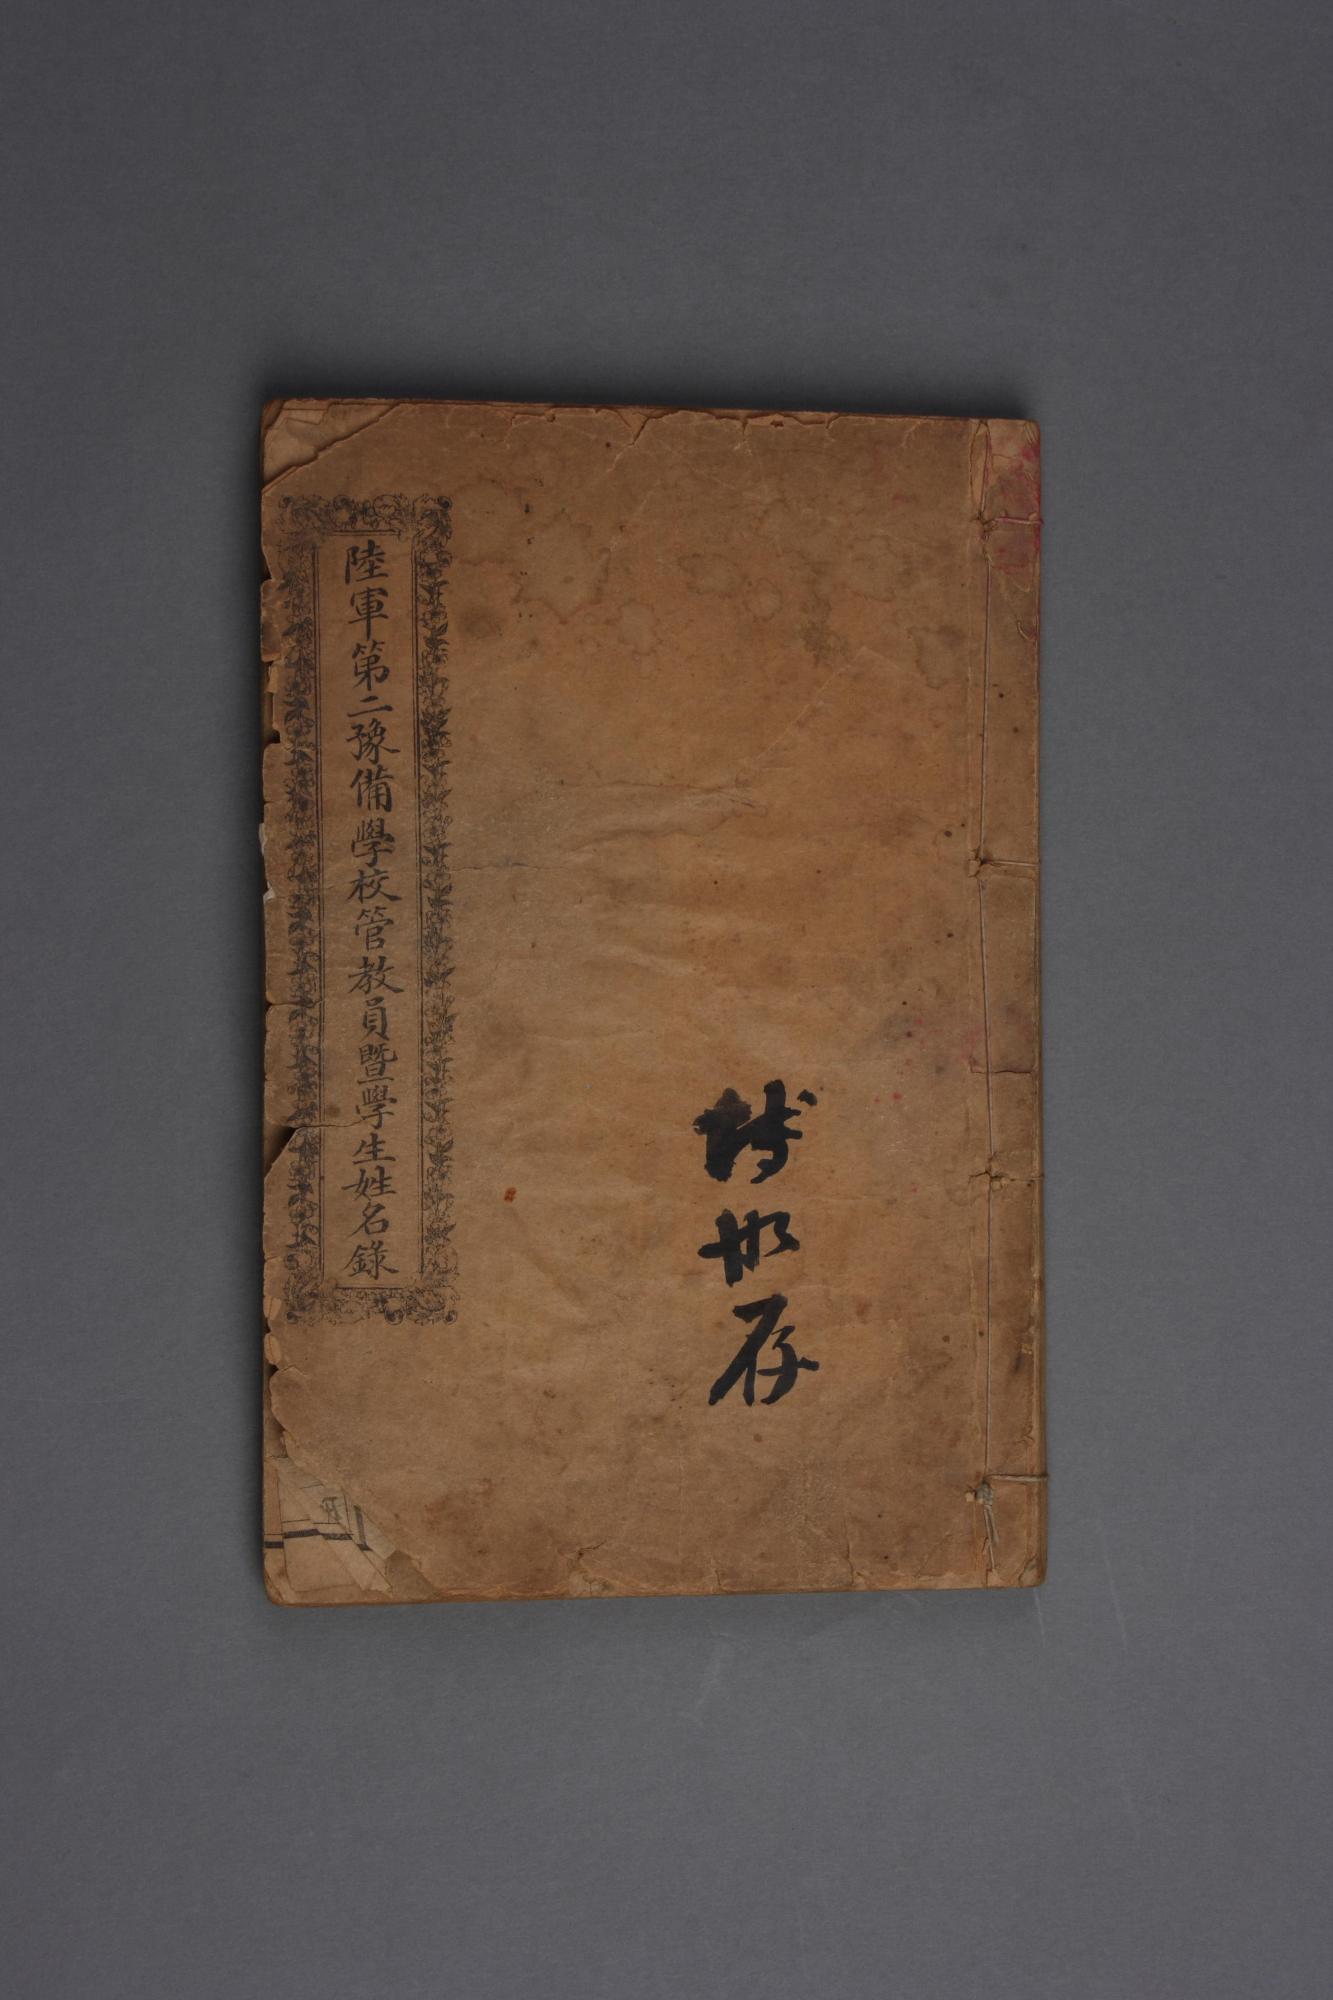 陸軍第二豫備學校管教員暨學生姓名錄
存